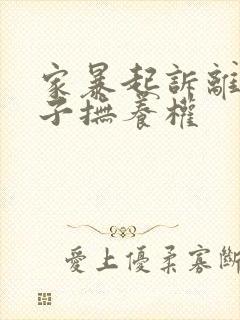 家暴起訴離
子撫養權
愛上優柔寡斷